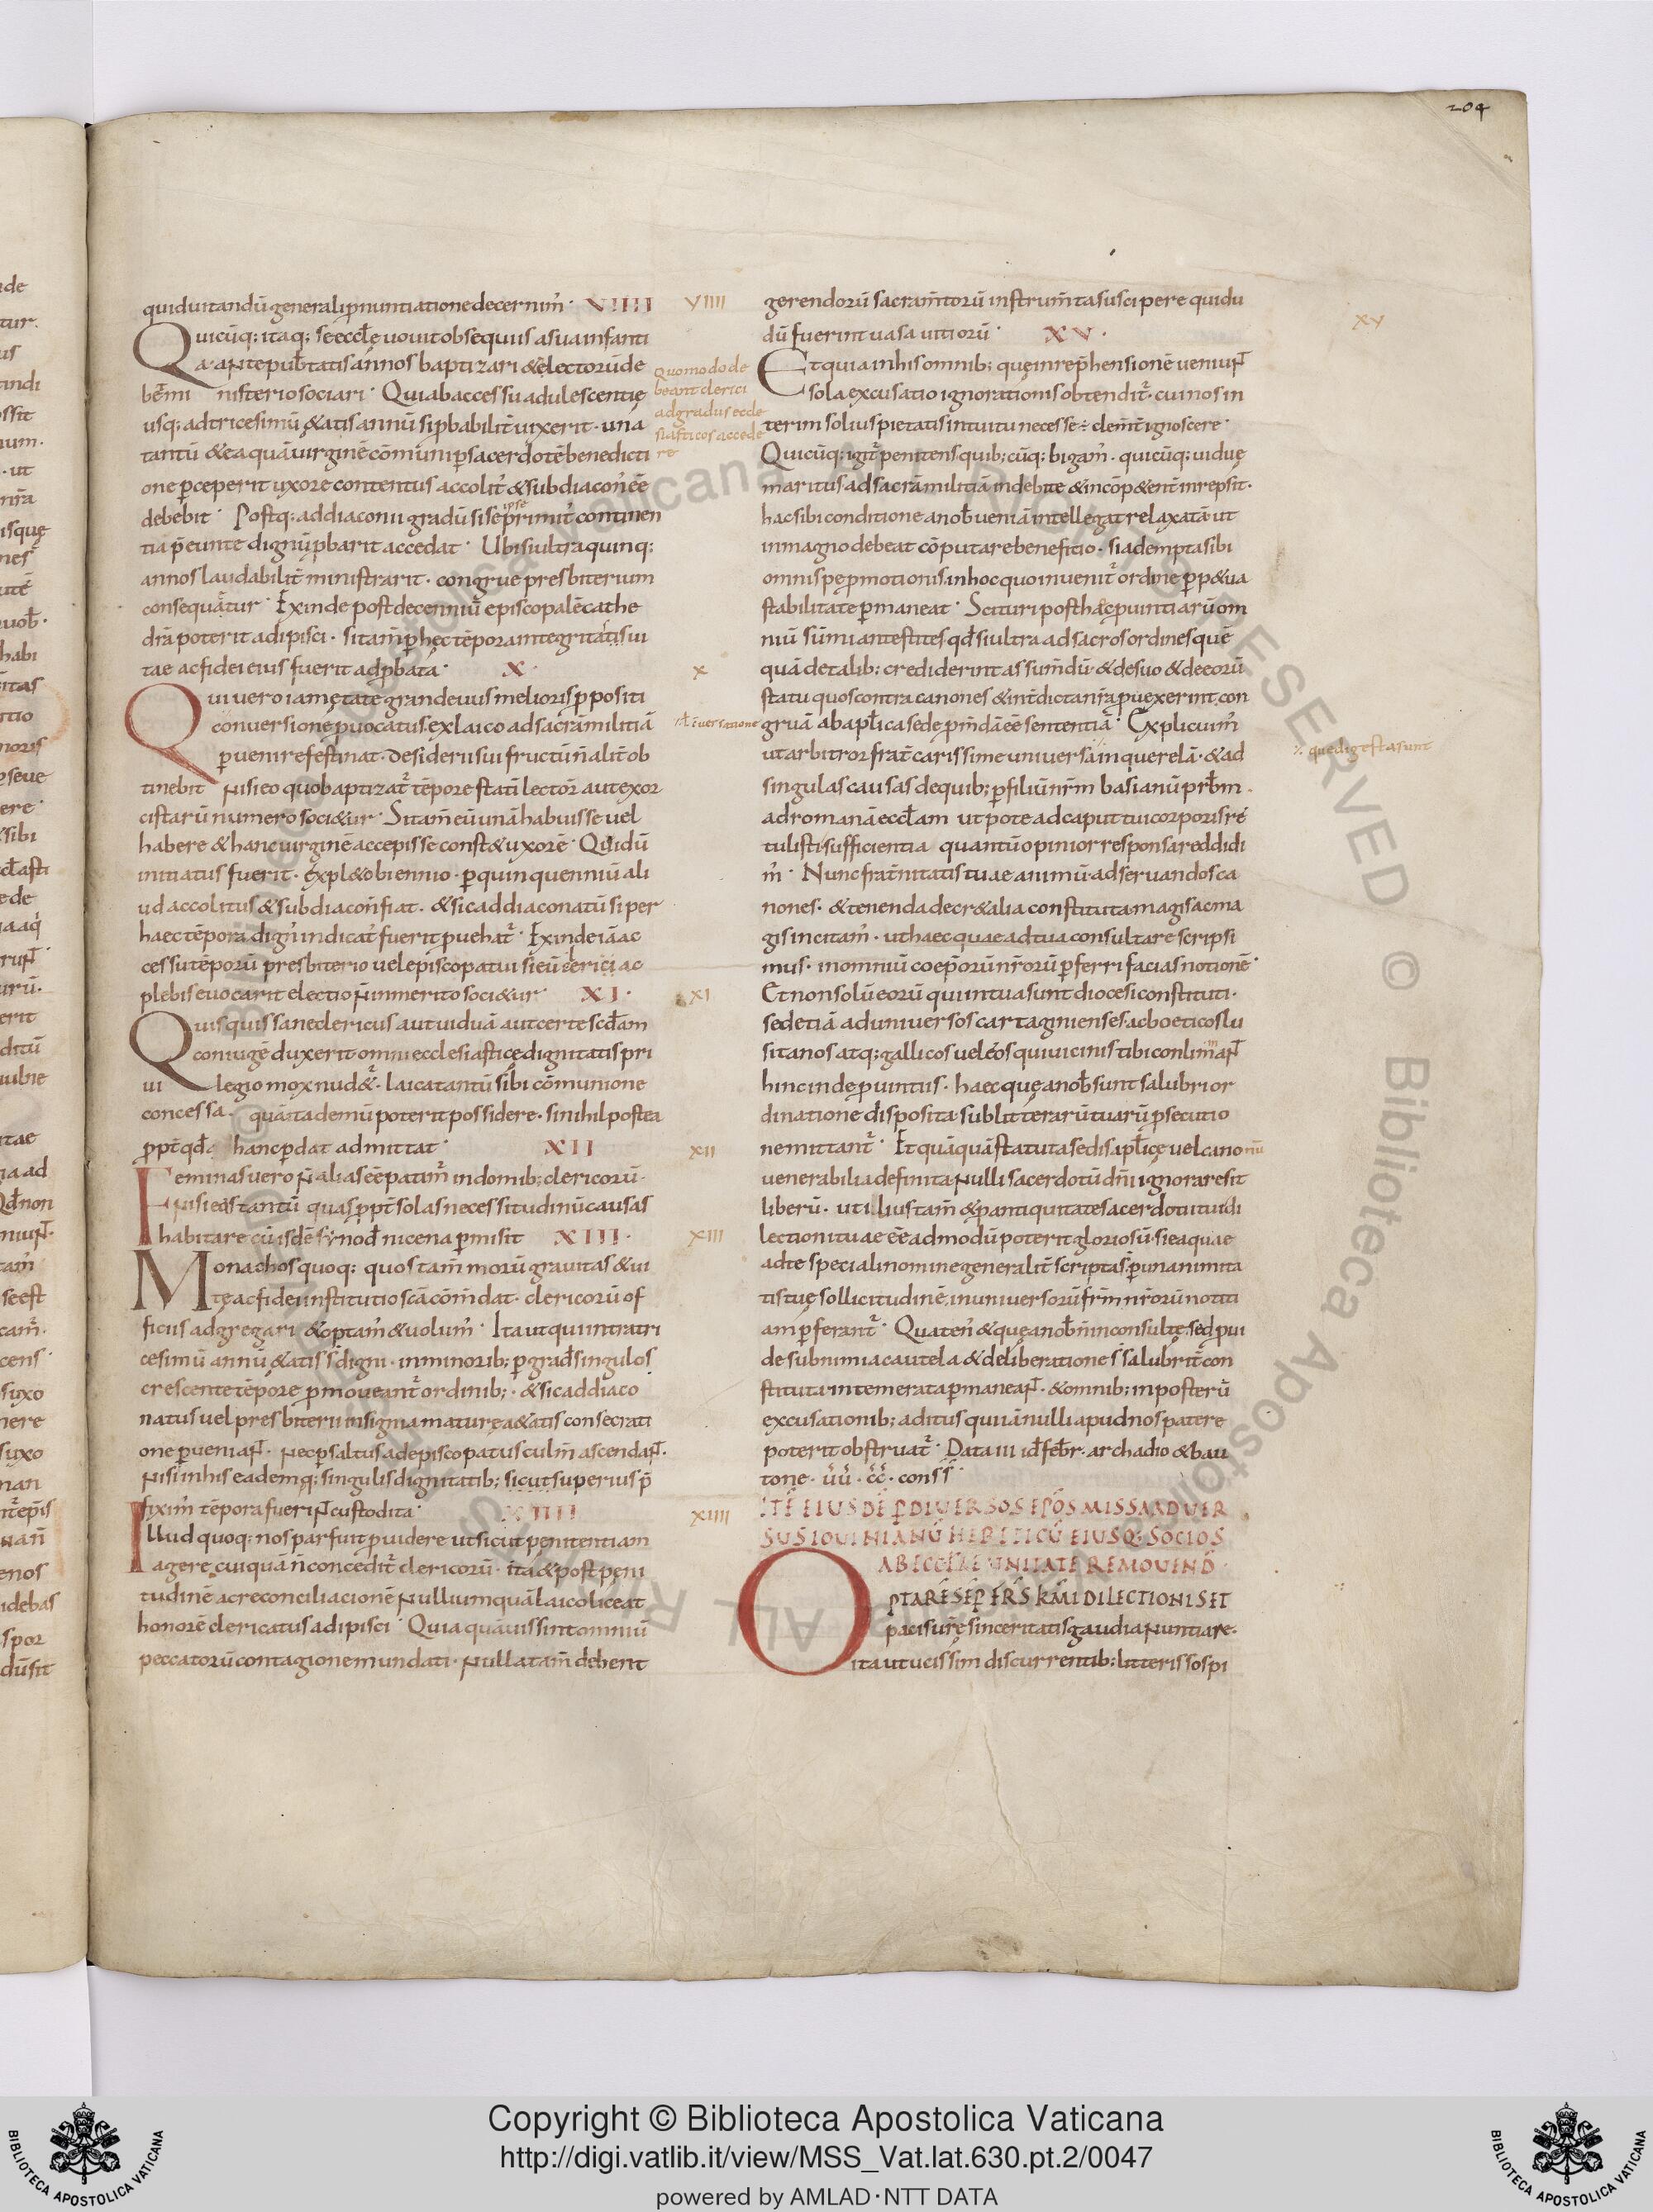 204
quid uitandū generali p̄nuntiatione decernim᾽· VIIII
Quicūq; itaq; se eccłe uouit obsequiis a sua infanti
a· ante pub̄tatis annos baptizari & lectorū de
b&mi nisterio sociari· Qui ab accessu adulescentię
usq; ad tricesimū &atis annū si p̱babilit̄ uixerit· una
tantū & ea quā uirginē cōmuni p̱ sacerdotē benedicti
one p̱ceperit uxore contentus accolit᾽ & subdiacon᾽ eē
debebit· Postq; ad diaconii gradū si se ipse primit᾽ continen
tia p̄eunte dignū p̱barit accedat· Ubi si ultra quinq;
annos laudabilit̄ ministrarit· congrue presbiterium
consequatur· Exinde post decenniū episcopalē cathe
drā poterit adipisci· si tam̄ p̱ hęc tēpora integritatis ui
tae ac fidei eius fuerit adp̱bata· X·
Qui uero iam ętate grandeuus melioris p̱positi
conuersione p̱uocatus· ex laico ad sacrā militiā
p̱uenire festinat· desiderii sui fructū n̄ alit̄ ob
tinebit Nisi eo quo baptizat᾽ tēpore stati lector̄ aut exor
cistarū numero soci&ur· Si tam̄ eū unā habuisse uel
habere & hanc uirginē accepisse const& uxorē· Qui dū
initiatus fuerit· expl&o biennio· p̱ quinquenniū ali
ud accolitus & subdiacon̄ fiat· & sic ad diaconatū si per
haec tēpora dign᾽ iudicat᾽ fuerit p̱uehat᾽· Exinde iā ac
cessu tēporū presbiterio uel episcopatui si eū clerici ac
plebis euocarit electio n̄ inmerito soci&ur· XI·
Quisquis sane clericus aut uiduā aut certe scđam
coniugē duxerit omni ecclesiasticę dignitatis pri
ui legio mox nud&᾽· laica tantū sibi cōmunione
concessa· quā ita demū poterit possidere· si nihil postea
p̱pt̄ qđ hanc p̱dat admittat· XII
Feminas uero n̄ alias eē patim̄ in domib; clericorū·
Nisi eas tantū quas p̱pt̄ solas necessitudinū causas
habitare cū isdē synođ nicena p̱misit XIII·
Monachos quoq; quos tam̄ morū grauitas & ui
tę ac fidei institutio scā cōmdat· clericorū of
ficiis adgregari & optam᾽ & uolum᾽· Ita ut qui intra tri
cesimū annū &atis s᾽ digni· in minorib; p̱ grad᾽ singulos
crescente tēpore p̱moueant᾽ ordinib;· & sic ad diaco
natus uel presbiterii insignia maturę a&atis consecrati
one p̱ueniant· nec p̱ saltus ad episcopatus culm̄ ascendant·
Nisi in his eademq; singulis dignitatib; sicut superius p̄
fixim᾽ tēpora fuerint custodita· XIIII
Illud quoq; nos par fuit p̱uidere ut sicut penitentiam
agere cuiquā n̄ concedit᾽ clericorū· ita & post peni
tudinē ac reconciliacionē nulli umquā laico liceat
honorē clericatus adipisci· Quia quāuis sint omniū
peccatorū contagione mundati· nulla tam̄ debent
VIIII
Quomodo de
beant clerici
ad gradus eccle
siasticos accede
re
X
XI
XII
XIII
XIIII
gerendorū sacram̄torū instrum̄ta suscipere qui du
dū fuerint uasa uitiorū· XV·
Et quia in his omnib; quę in rep̄hensionē ueniunt
sola excusatio ignorationis obtendit᾽· cui nos in
terim solius pietatis intuitu necesse ÷ clem̄t̄ ignoscere·
Quicūq; igit᾽ penitens quib;cūq; bigam᾽· quicūq; uiduę
maritus ad sacrā militiā indebite & incōp&ent̄ inrepsit·
hac sibi conditione a nob̄ ueniā intellegat relaxatā ut
in magno debeat cōputare benefitio· si adempta sibi
omni spe p̱motionis· in hoc quo inuenit᾽ ordine p̱p&ua
stabilitate p̱maneat· Scituri posthac p̱uintiarū om
niū sūmi antestites qđ si ultra ad sacros ordines quē
quā de talib; crediderint assum̄dū· & de suo & de eorū
statu quos contra canones & int̄dicta nr̄a p̱uexerint· con
gruā ab apłica sede p̱m̄dā eē sententiā· Explicuim᾽
ut arbitror frat̄ carissime uniuersa in querelā· & ad
singulas causas de quib; p̱ filiū nr̄m basianū prb̄m·
ad romanā eccłam utpote ad caput tui corporis re
tulisti sufficientia quantū opinior responsa reddidi
m᾽· Nunc frat̄nitatis tuae animū· ad seruandos ca
nones· & tenenda decr&alia constituta magis ac ma
gis incitam᾽· ut haec quae ad tua consulta rescripsi
mus· in omniū coep̄orū nr̄orū p̱ferri facias notionē·
Et non solū eorū qui in tua sunt diocesi constituti·
sed etiā ad uniuersos cartaginienses· ac boeticos· lu
sitanos atq; gallicos uel eos qui uicinis tibi conlimitant
hinc inde p̱uintiis· haec quę a nob̄ sunt salubri or
dinatione disposita· sub litterarū tuarū p̱secutio
ne mittant᾽· Et quāquā statuta sedis apłicę uel canonū
uenerabilia definita· nulli sacerdotū dn̄i ignorare sit
liberū· utilius tam̄ & p̱ antiquitate sacerdotii tui di
lectioni tuae eē admodū poterit gloriosū· si ea quae
ad te speciali nomine generalit̄ scripta s᾽· p̱ unanimita
tis tuę sollicitudinē in uniuersorū frm̄ nr̄orū notiti
am p̱ferant᾽· Quaten᾽ & quę a nob̄ n̄ inconsulte· sed p̱ui
de sub nimia cautela & deliberatione s᾽ salubrit̄ con
stituta intemerata p̱maneant· & omnib; in posterū
excusationib; aditus qui iā nulli apud nos patere
poterit obstruat᾽· Data III iđ feb̄r· archadio & bau
tone· ūū· c̄c̄· conss̄·
ITĒ EIUSDĒ P̱ DIUERSOS EPŌS MISSA ADUER
SUS IOUINIANŪ HERETICŪ EIUSQ; SOCIOS
AB ECCLĒ UNITATE REMOUEND·
OPTARĒ SEP̱ FR̄S KMI DILECTIONIS ET
pacis urę sinceritatis gaudia nuntiare·
ita ut uicissim discurrentib; litteris sospi
XV
que digesta sunt
Copyright © Biblioteca Apostolica Vaticana
http://digi.vatlib.it/view/MSS_Vat.lat.630.pt.2/0047
powered by AMLAD·NTT DATA
BIBLIOTECA APOSTOLICA VATICANA
BIBLIOTECA APOSTOLICA VATICANA